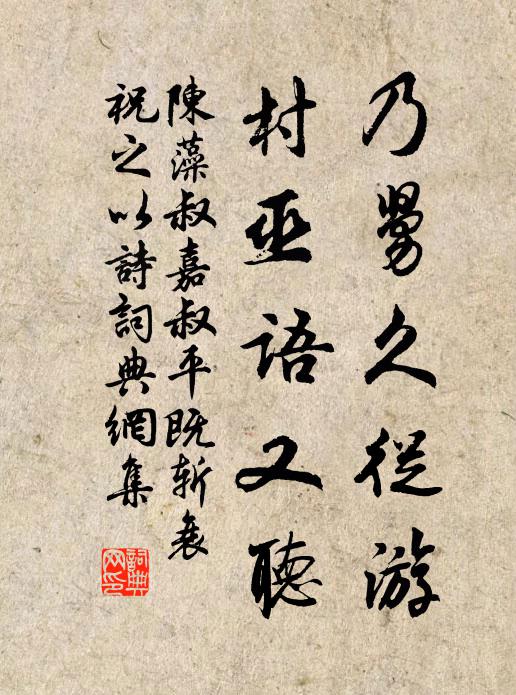 乃舅久從游
村巫語又聽
陳藻叔嘉叔平既斬衰
祝之以詩詞典網集
詞典网印